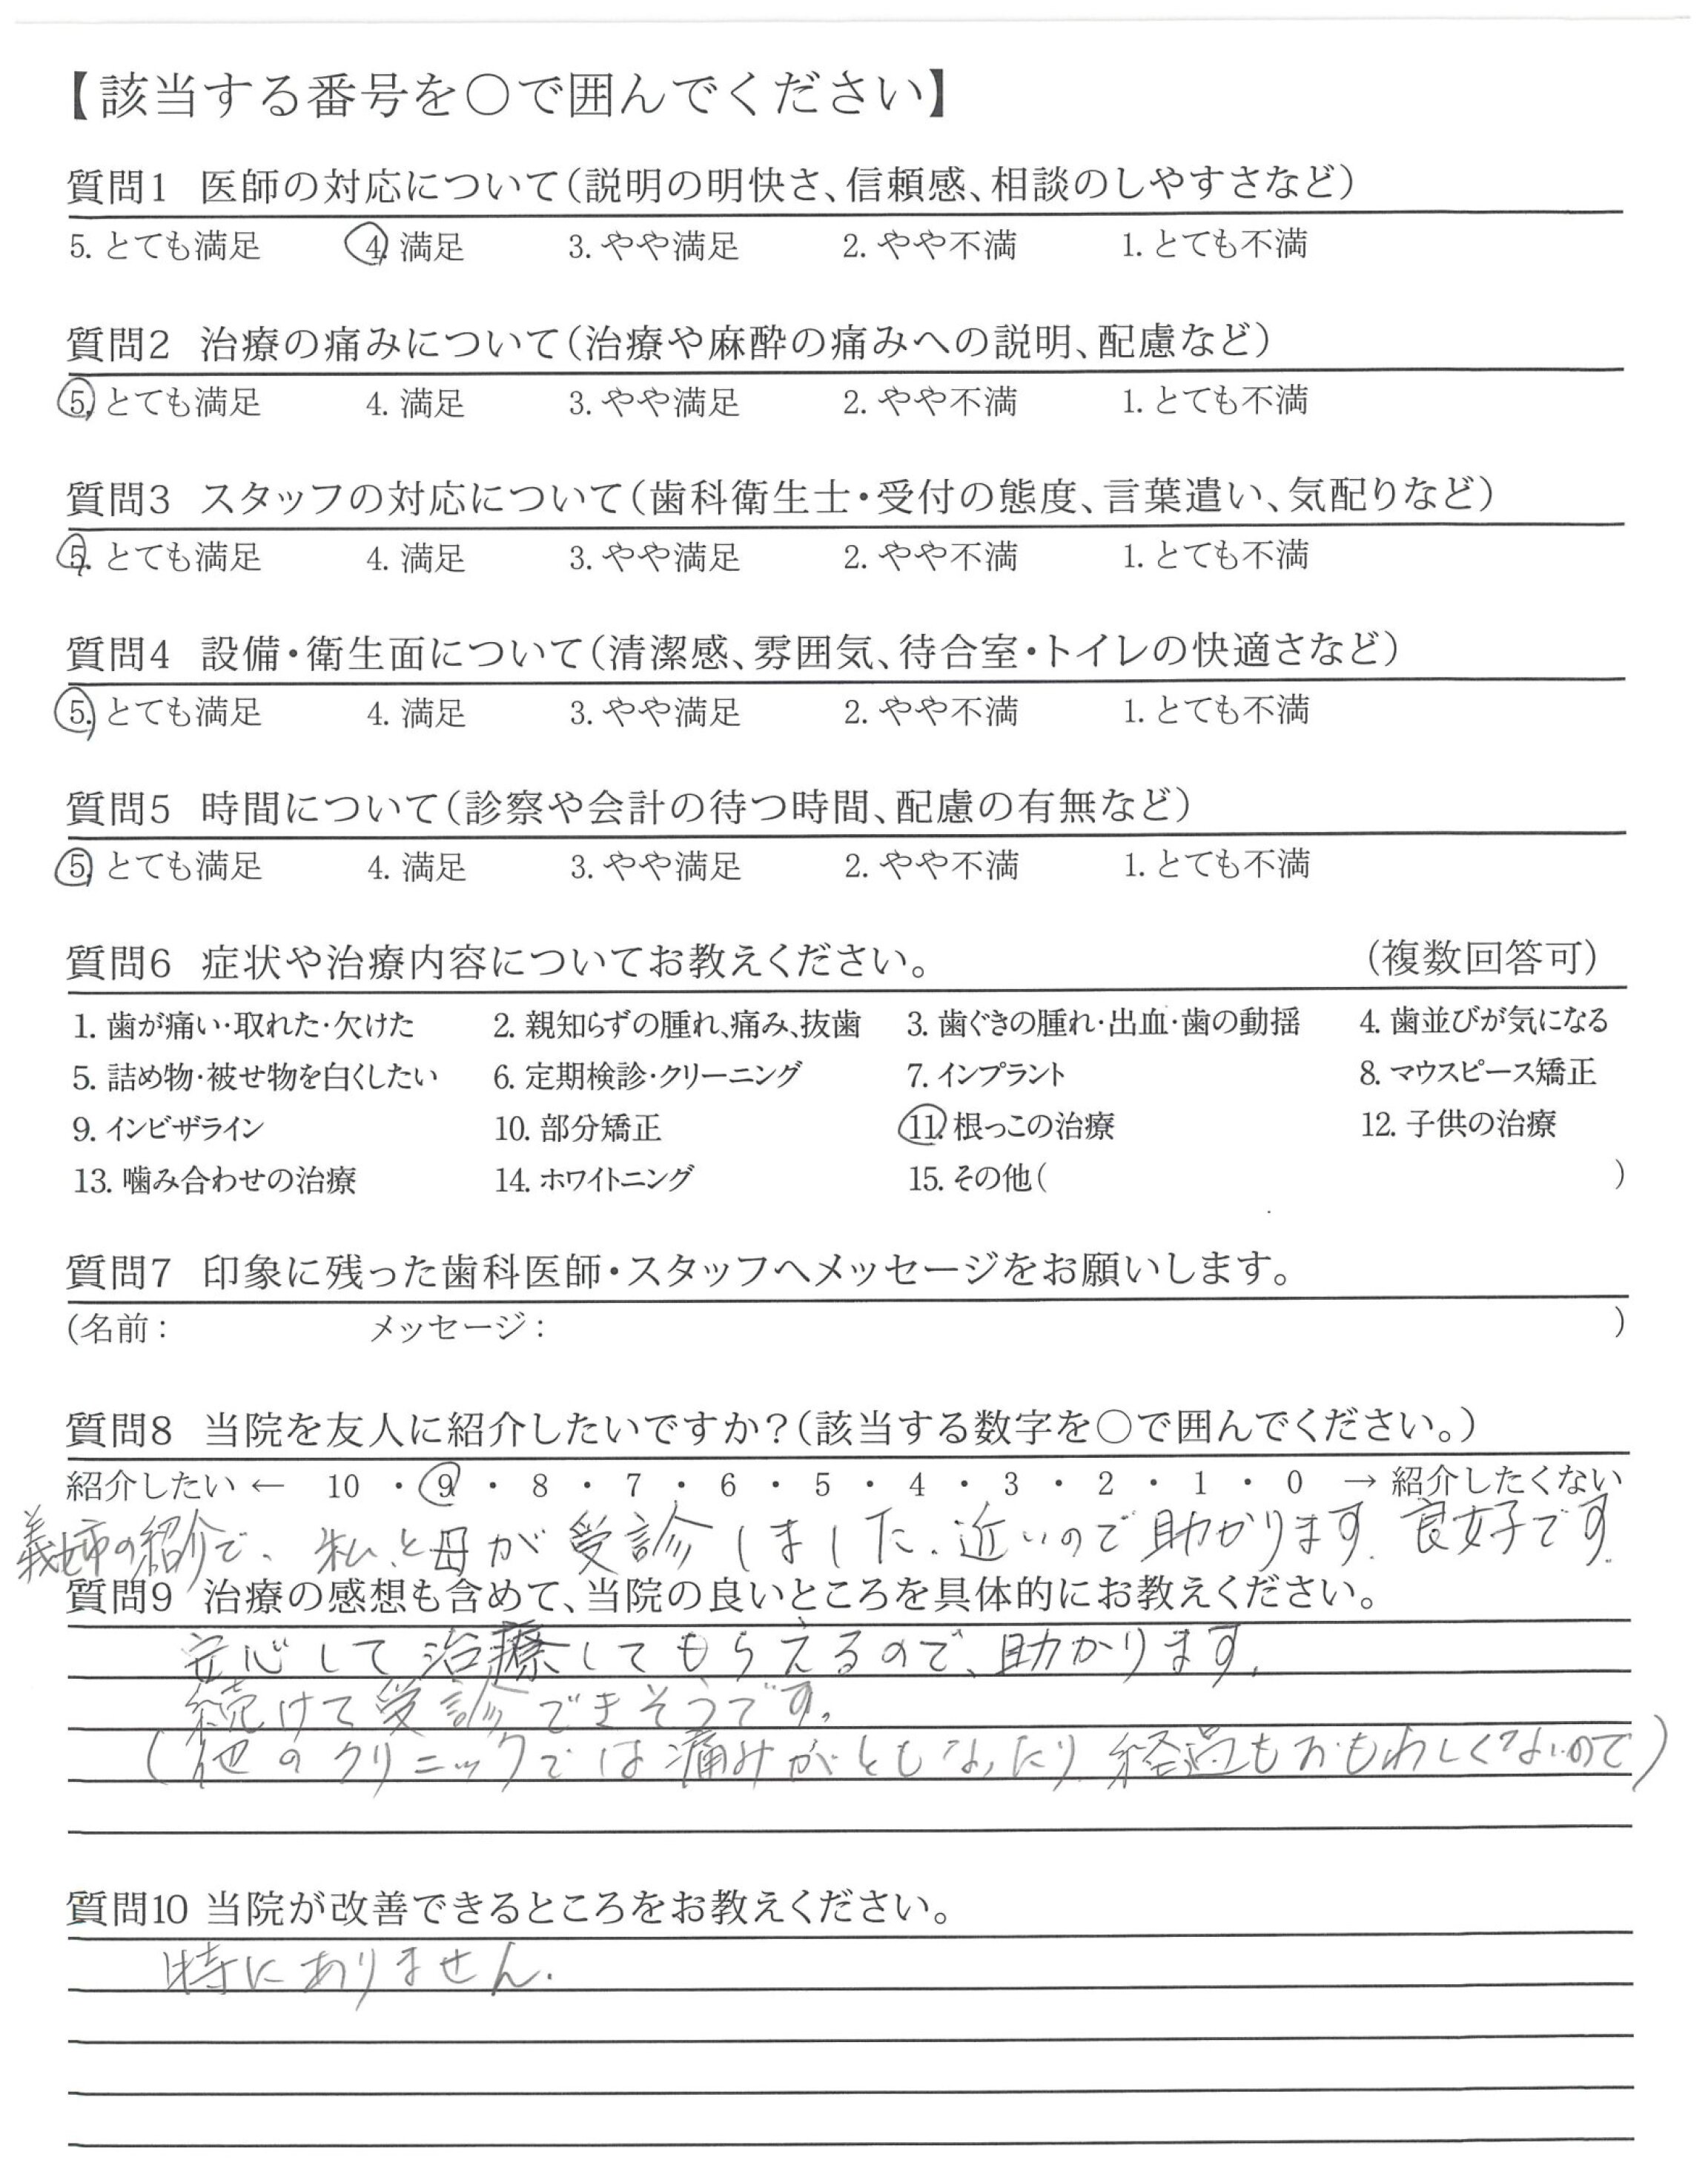 【該当する番号を○で囲んでください】
質問1 医師の対応について(説明の明快さ、信頼感、相談のしやすさなど)
5. とても満足 4. 満足 3. やや満足 2. やや不満 1. とても不満
質問2 治療の痛みについて(治療や麻酔の痛みへの説明、配慮など)
5. とても満足 4. 満足 3. やや満足 2. やや不満 1. とても不満
質問3 スタッフの対応について(歯科衛生士・受付の態度、言葉遣い、気配りなど)
5. とても満足 4. 満足 3. やや満足 2. やや不満 1. とても不満
質問4 設備・衛生面について(清潔感、雰囲気、待合室・トイレの快適さなど)
5. とても満足 4. 満足 3. やや満足 2. やや不満 1. とても不満
質問5 時間について(診察や会計の待つ時間、配慮の有無など)
5. とても満足 4. 満足 3. やや満足 2. やや不満 1. とても不満
質問6 症状や治療内容についてお教えください。 (複数回答可)
1. 歯が痛い・取れた・欠けた 2. 親知らずの腫れ、痛み、抜歯 3. 歯ぐきの腫れ・出血・歯の動揺 4. 歯並びが気になる
5. 詰め物・被せ物を白くしたい 6. 定期検診・クリーニング 7. インプラント 8. マウスピース矯正
9. インビザライン 10. 部分矯正 11. 根っこの治療 12. 子供の治療
13. 噛み合わせの治療 14. ホワイトニング 15. その他( )
質問7 印象に残った歯科医師・スタッフへメッセージをお願いします。
(名前: メッセージ: )
質問8 当院を友人に紹介したいですか?(該当する数字を○で囲んでください。)
紹介したい ← 10 ・ 9 ・ 8 ・ 7 ・ 6 ・ 5 ・ 4 ・ 3 ・ 2 ・ 1 ・ 0 → 紹介したくない
義姉の紹介で、私と母が受診しました。近いので助かります。良好です。
質問9 治療の感想も含めて、当院の良いところを具体的にお教えください。
安心して治療してもらえるので、助かります。
続けて受診できそうです。
(他のクリニックでは痛みがともなったり、経過もおもわしくないので)
質問10 当院が改善できるところをお教えください。
特にありません.